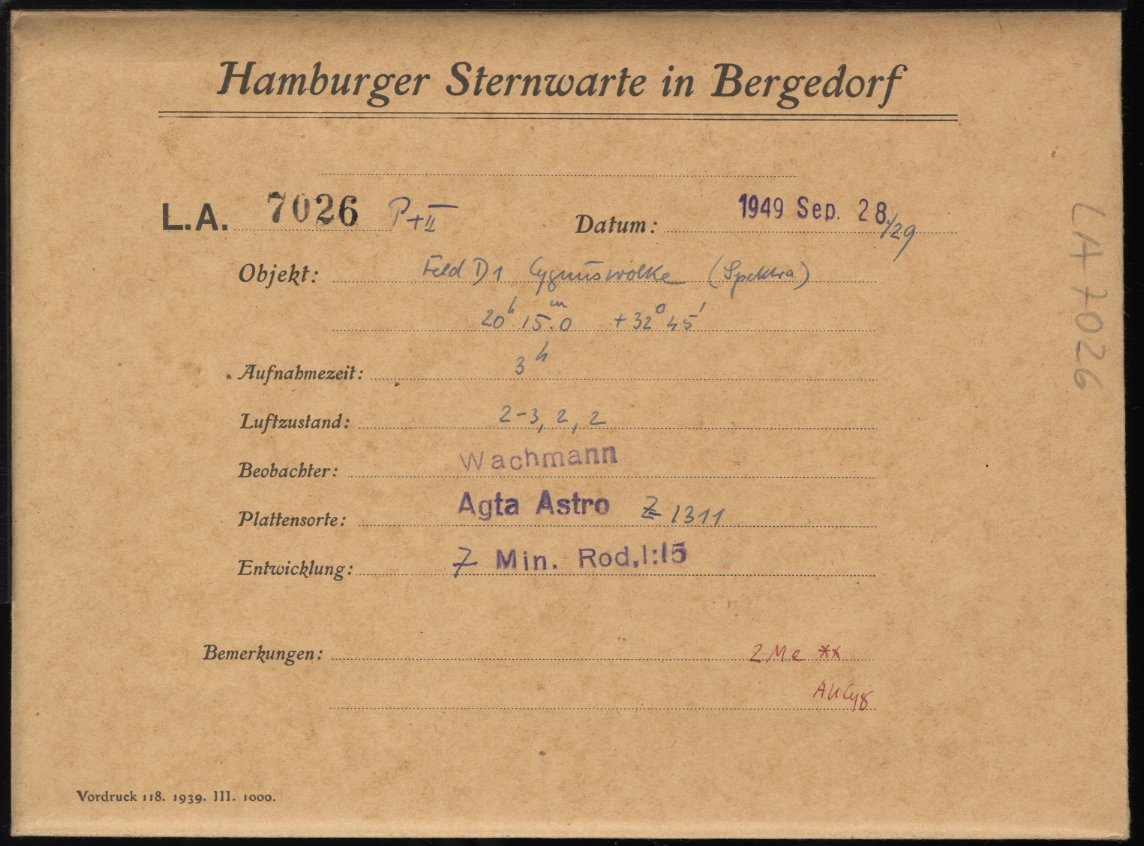 Hamburger Sternwarte in Bergedorf
L.A. 7026 P+II Datum: 1949 Sep. 28./29
Objekt: Feld D1 Cygnuswolke (Spektra)
20h 15.m0 +32° 45'
Aufnahmezeit: 3h
Luftzustand: 2-3, 2, 2
Beobachter: Wachmann
Plattensorte: Agfa Astro Z 1311
Entwicklung: 7 Min. Rod. 1:15
Bemerkungen: 2 Me **
AUCyg
Vordruck 118. 1939. III. 1000.
LA 7026